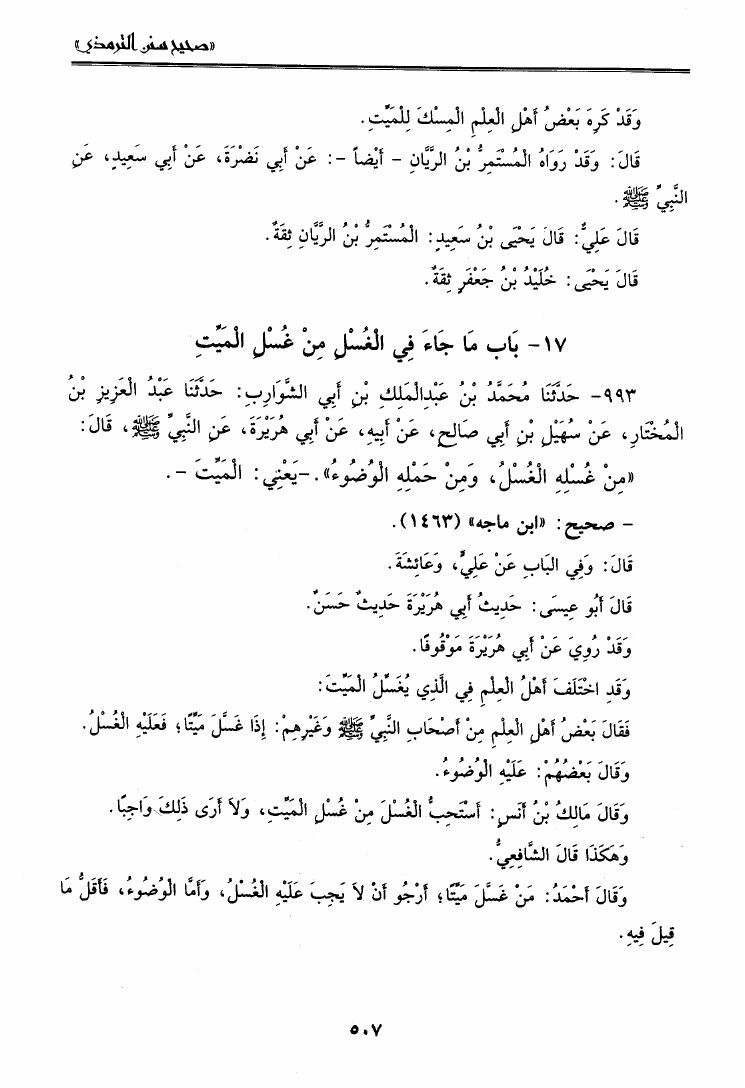 «صحيح سنن الترمذي»
وَقَدْ كَرِهَ بَعْضُ أَهْلِ العِلْمِ المِسْكَ لِلْمَيِّتِ.
قَالَ: وَقَدْ رَوَاهُ المُسْتَمِرُّ بْنُ الرَّيَّانِ – أَيْضاً –: عَنْ أَبِي نَضْرَةَ، عَنْ أَبِي سَعِيدٍ، عَنِ
النَّبِيِّ ﷺ.
قَالَ عَلِيٌّ: قَالَ يَحْيَى بْنُ سَعِيدٍ: المُسْتَمِرُّ بْنُ الرَّيَّانِ ثِقَةٌ.
قَالَ يَحْيَى: خُلَيْدُ بْنُ جَعْفَرٍ ثِقَةٌ.
١٧- بَاب مَا جَاءَ فِي الغُسْلِ مِنْ غُسْلِ الْمَيِّتِ
٩٩٣- حَدَّثَنَا مُحَمَّدُ بْنُ عَبْدِالْمَلِكِ بْنِ أَبِي الشَّوَارِبِ: حَدَّثَنَا عَبْدُ الْعَزِيزِ بْنُ
الْمُخْتَارِ، عَنْ سُهَيْلِ بْنِ أَبِي صَالِحٍ، عَنْ أَبِيهِ، عَنْ أَبِي هُرَيْرَةَ، عَنِ النَّبِيِّ ﷺ، قَالَ:
«مِنْ غُسْلِهِ الْغُسْلُ، وَمِنْ حَمْلِهِ الْوُضُوءُ». –يَعْنِي: الْمَيِّتَ –.
– صحيح: «ابن ماجه» (١٤٦٣).
قَالَ: وَفِي البَابِ عَنْ عَلِيٍّ، وَعَائِشَةَ.
قَالَ أَبُو عِيسَى: حَدِيثُ أَبِي هُرَيْرَةَ حَدِيثٌ حَسَنٌ.
وَقَدْ رُوِيَ عَنْ أَبِي هُرَيْرَةَ مَوْقُوفًا.
وَقَدِ اخْتَلَفَ أَهْلُ العِلْمِ فِي الَّذِي يُغَسِّلُ المَيِّتَ:
فَقَالَ بَعْضُ أَهْلِ العِلْمِ مِنْ أَصْحَابِ النَّبِيِّ ﷺ وَغَيْرِهِمْ: إِذَا غَسَّلَ مَيِّتًا؛ فَعَلَيْهِ الْغُسْلُ.
وَقَالَ بَعْضُهُمْ: عَلَيْهِ الْوُضُوءُ.
وَقَالَ مَالِكُ بْنُ أَنَسٍ: أَسْتَحِبُّ الْغُسْلَ مِنْ غُسْلِ المَيِّتِ، وَلاَ أَرَى ذَلِكَ وَاجِبًا.
وَهَكَذَا قَالَ الشَّافِعِيُّ.
وَقَالَ أَحْمَدُ: مَنْ غَسَّلَ مَيِّتًا؛ أَرْجُو أَنْ لاَ يَجِبَ عَلَيْهِ الْغُسْلُ، وَأَمَّا الْوُضُوءُ، فَأَقَلُّ مَا
قِيلَ فِيهِ.
٥٠٧